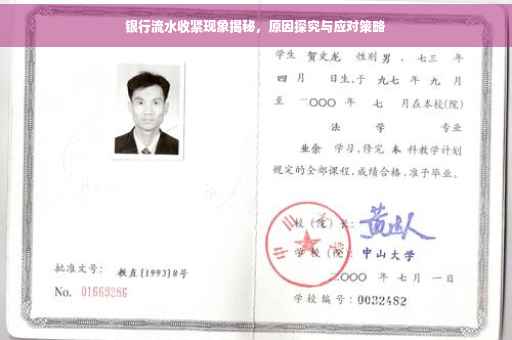 银行流水收紧现象揭秘，原因探究与应对策略
学生 贺文龙 性别 男 、七三 年
四 月 日生,于 九七 年 九 月
至 二〇〇〇 年 七 月在本校(院)
法 学 专业
业余 学习,修完 本 科教学计划
规定的全部课程,成绩合格,准予毕业。
校（院）长:
学 校（院）: 中山大学
二〇〇〇 年 七 月 一 日
学校编号: 0032482
批准文号: 教直[1993]8号
No. 01669286